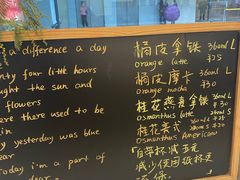 a difference a day
nty four little hours
ught the sun and
flowers
ere there used to be
in
y yesterday was blue
ear
oday i'm a part of
dear
橘皮拿铁 360ml L
orange latte ¥35
橘皮摩卡 360ml L
orange mocha
桂花燕麦拿铁
osmanthus latte
桂花美式
Osmanthus Americano
自带杯减五元
减少使用纸杯